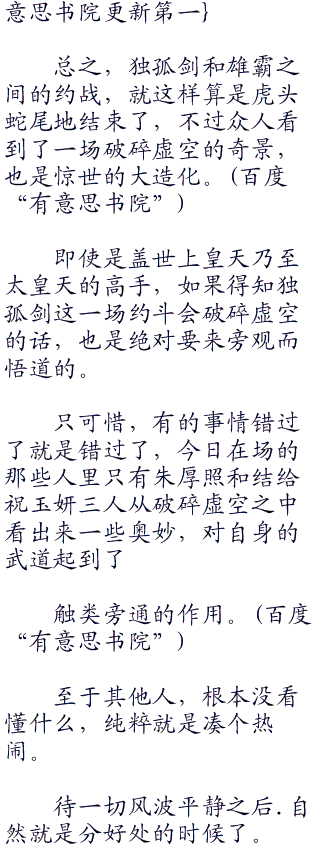 意思书院更新第一}
总之，独孤剑和雄霸之
间的约战，就这样算是虎头
蛇尾地结束了，不过众人看
到了一场破碎虚空的奇景，
也是惊世的大造化。(百度
“有意思书院”)
即使是盖世上皇天乃至
太皇天的高手，如果得知独
孤剑这一场约斗会破碎虚空
的话，也是绝对要来旁观而
悟道的。
只可惜，有的事情错过
了就是错过了，今日在场的
那些人里只有朱厚照和结给
祝玉妍三人从破碎虚空之中
看出来一些奥妙，对自身的
武道起到了
触类旁通的作用。(百度
“有意思书院”)
至于其他人，根本没看
懂什么，纯粹就是凑个热
闹。
待一切风波平静之后.自
然就是分好处的时候了。